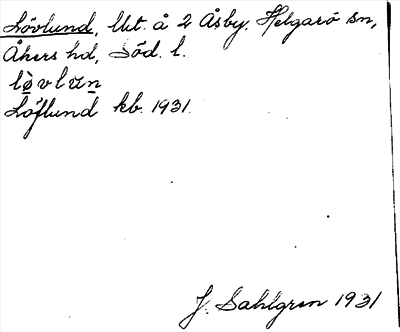 Lövlund, lht. å 2 Åsby, Helgarö sn,
Åkers hd, Söd. l.
lø̀vlun
Löflund kb. 1931.
J. Sahlgren 1931